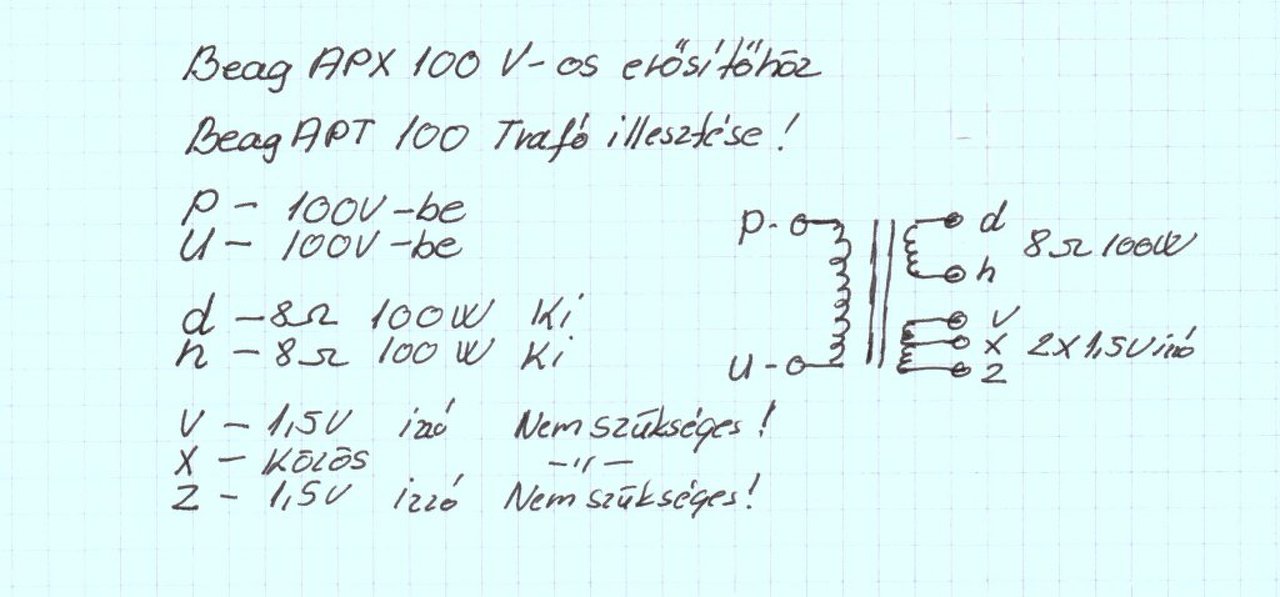 Beag APX 100 V-os erősítőhöz
Beag APT 100 Trafó illesztése!
P - 100V-be
U - 100V-be
d - 8Ω 100W Ki
h - 8Ω 100W Ki
V - 1,5V izó Nem szükséges!
X - Közös -"-
Z - 1,5V izzó Nem szükséges!
P-
U-
d
h
8Ω 100W
V
X
Z
2X1,5V izó